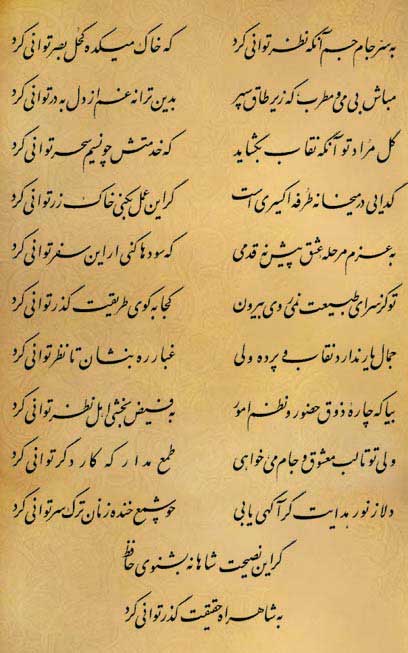 به سر جام جم آنگه نظر توانی کرد که خاک میکده کحل بصر توانی کرد
مباش بی می و مطرب که زیر طاق سپهر بدین ترانه غم از دل به در توانی کرد
گل مراد تو آنگه نقاب بگشاید که خدمتش چو نسیم سحر توانی کرد
گدایی در میخانه طرفه اکسیری است گر این عمل بکنی خاک زر توانی کرد
به عزم مرحله عشق پیش نه قدمی که سودها کنی ار این سفر توانی کرد
تو کز سرای طبیعت نمی روی بیرون کجا به کوی طریقت گذر توانی کرد
جمال یار ندارد نقاب و پرده ولی غبار ره بنشان تا نظر توانی کرد
بیا که چاره ذوق حضور و نظم امور به فیض بخشی اهل نظر توانی کرد
ولی تو تا لب معشوق و جام می خواهی طمع مدار که کار دگر توانی کرد
دلا ز نور هدایت گر آگهی یابی چو شمع خنده زنان ترک سر توانی کرد
گر این نصیحت شاهانه بشنوی حافظ
به شاهراه حقیقت گذر توانی کرد